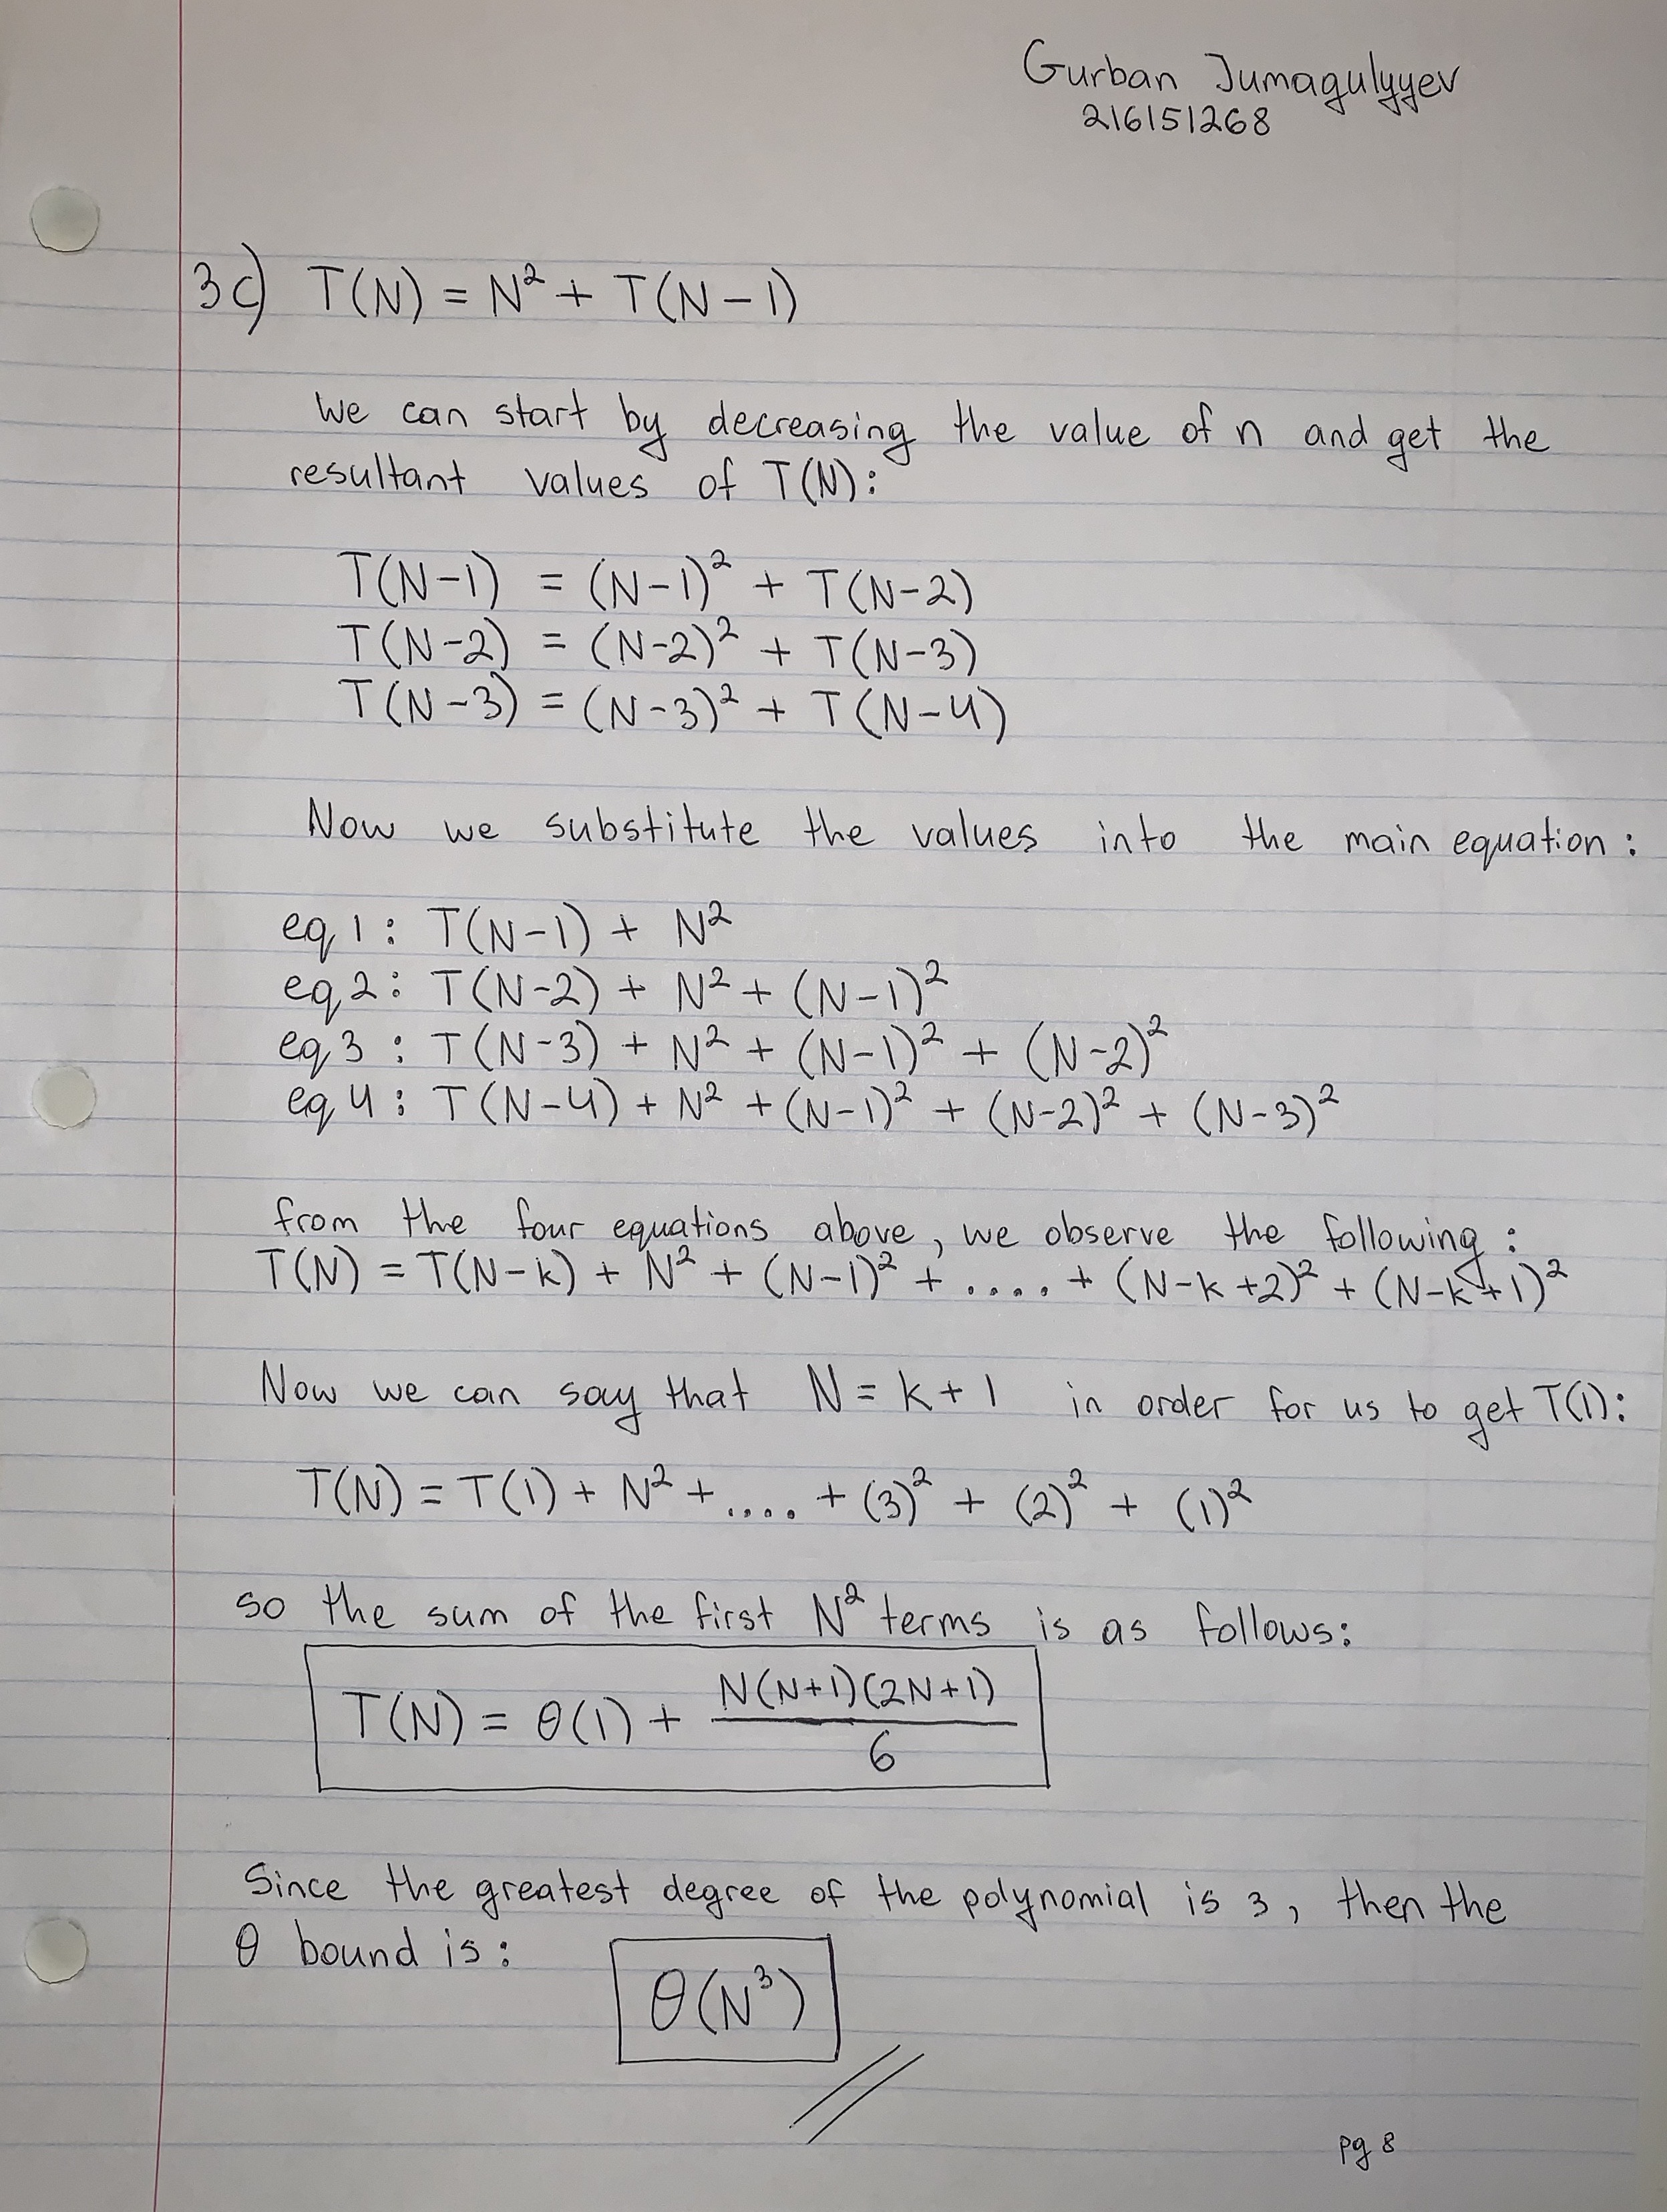 Gurban Jumagulyyev
216151268
3c) T(N) = N² + T(N-1)
We can start by decreasing the value of n and get the
resultant values of T(N):
T(N-1) = (N-1)² + T(N-2)
T(N-2) = (N-2)² + T(N-3)
T(N-3) = (N-3)² + T(N-4)
Now we substitute the values into the main equation:
eq1: T(N-1) + N²
eq2: T(N-2) + N² + (N-1)²
eq3: T(N-3) + N² + (N-1)² + (N-2)²
eq4: T(N-4) + N² + (N-1)² + (N-2)² + (N-3)²
from the four equations above, we observe the following:
T(N) = T(N-k) + N² + (N-1)² + .... + (N-k+2)² + (N-k+1)²
Now we can say that N = k + 1 in order for us to get T(1):
T(N) = T(1) + N² + .... + (3)² + (2)² + (1)²
so the sum of the first N² terms is as follows:
T(N) = θ(1) + N(N+1)(2N+1)/6
Since the greatest degree of the polynomial is 3, then the
θ bound is:
θ(N³)
pg 8